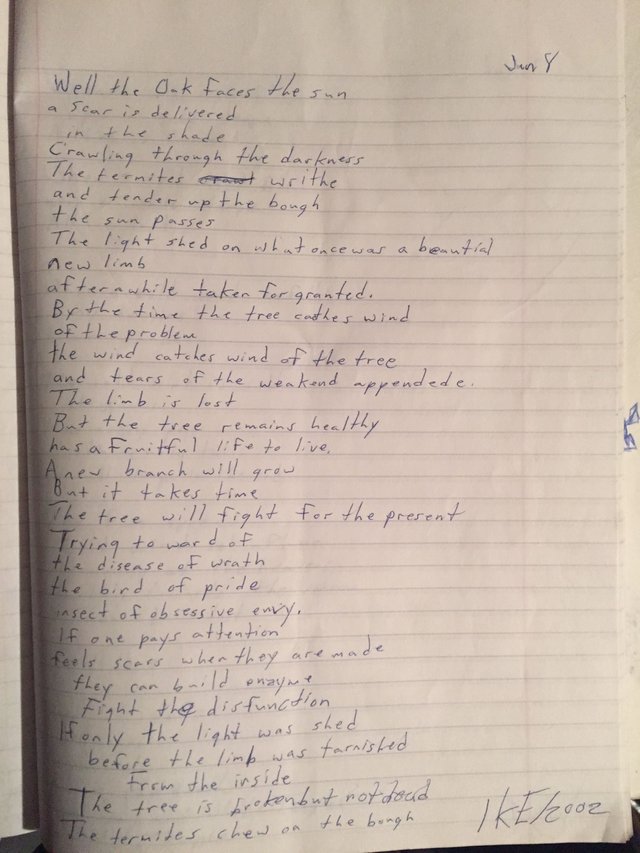 Jun 8
Well the Oak faces the sun
a scar is delivered
in the shade
Crawling through the darkness
The termites crawl writhe
and tender up the bough
the sun passes
The light shed on what once was a beautial
new limb
after awhile taken for granted.
By the time the tree cathes wind
of the problem
the wind catches wind of the tree
and tears of the weakend appendede.
The limb is lost
But the tree remains healthy
has a fruitful life to live.
A new branch will grow
But it takes time
The tree will fight for the present
Trying to ward of
the disease of wrath
the bird of pride
insect of obsessive envy.
If one pays attention
feels scars when they are made
they can build enzyme
Fight the disfunction
If only the light was shed
before the limb was tarnished
From the inside
The tree is broken but not dead
The termites chew on the bough
IKE/2002